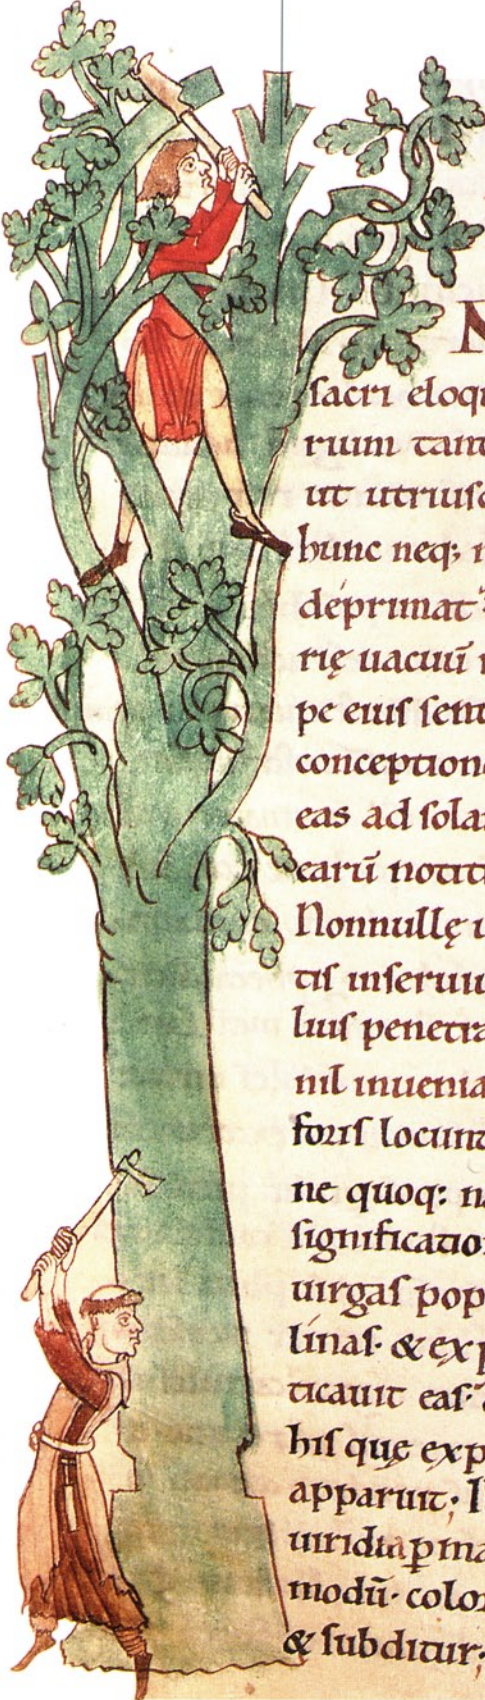 N
sacri eloqu
rium tant
ut utriusq
hunc neq; n
deprimat
rię uacuū
pe eius sent
conception
eas ad sola
earū notiti
Nonnullę u
tis inseruiu
lius penetra
nil inuenia
foris locunt
ne quoq: na
significatio
uirgas pop
linas· & exp
ticauit eas·
his quę exp
apparuit; I
uiridia p̱ ma
modū· color
& subditur;